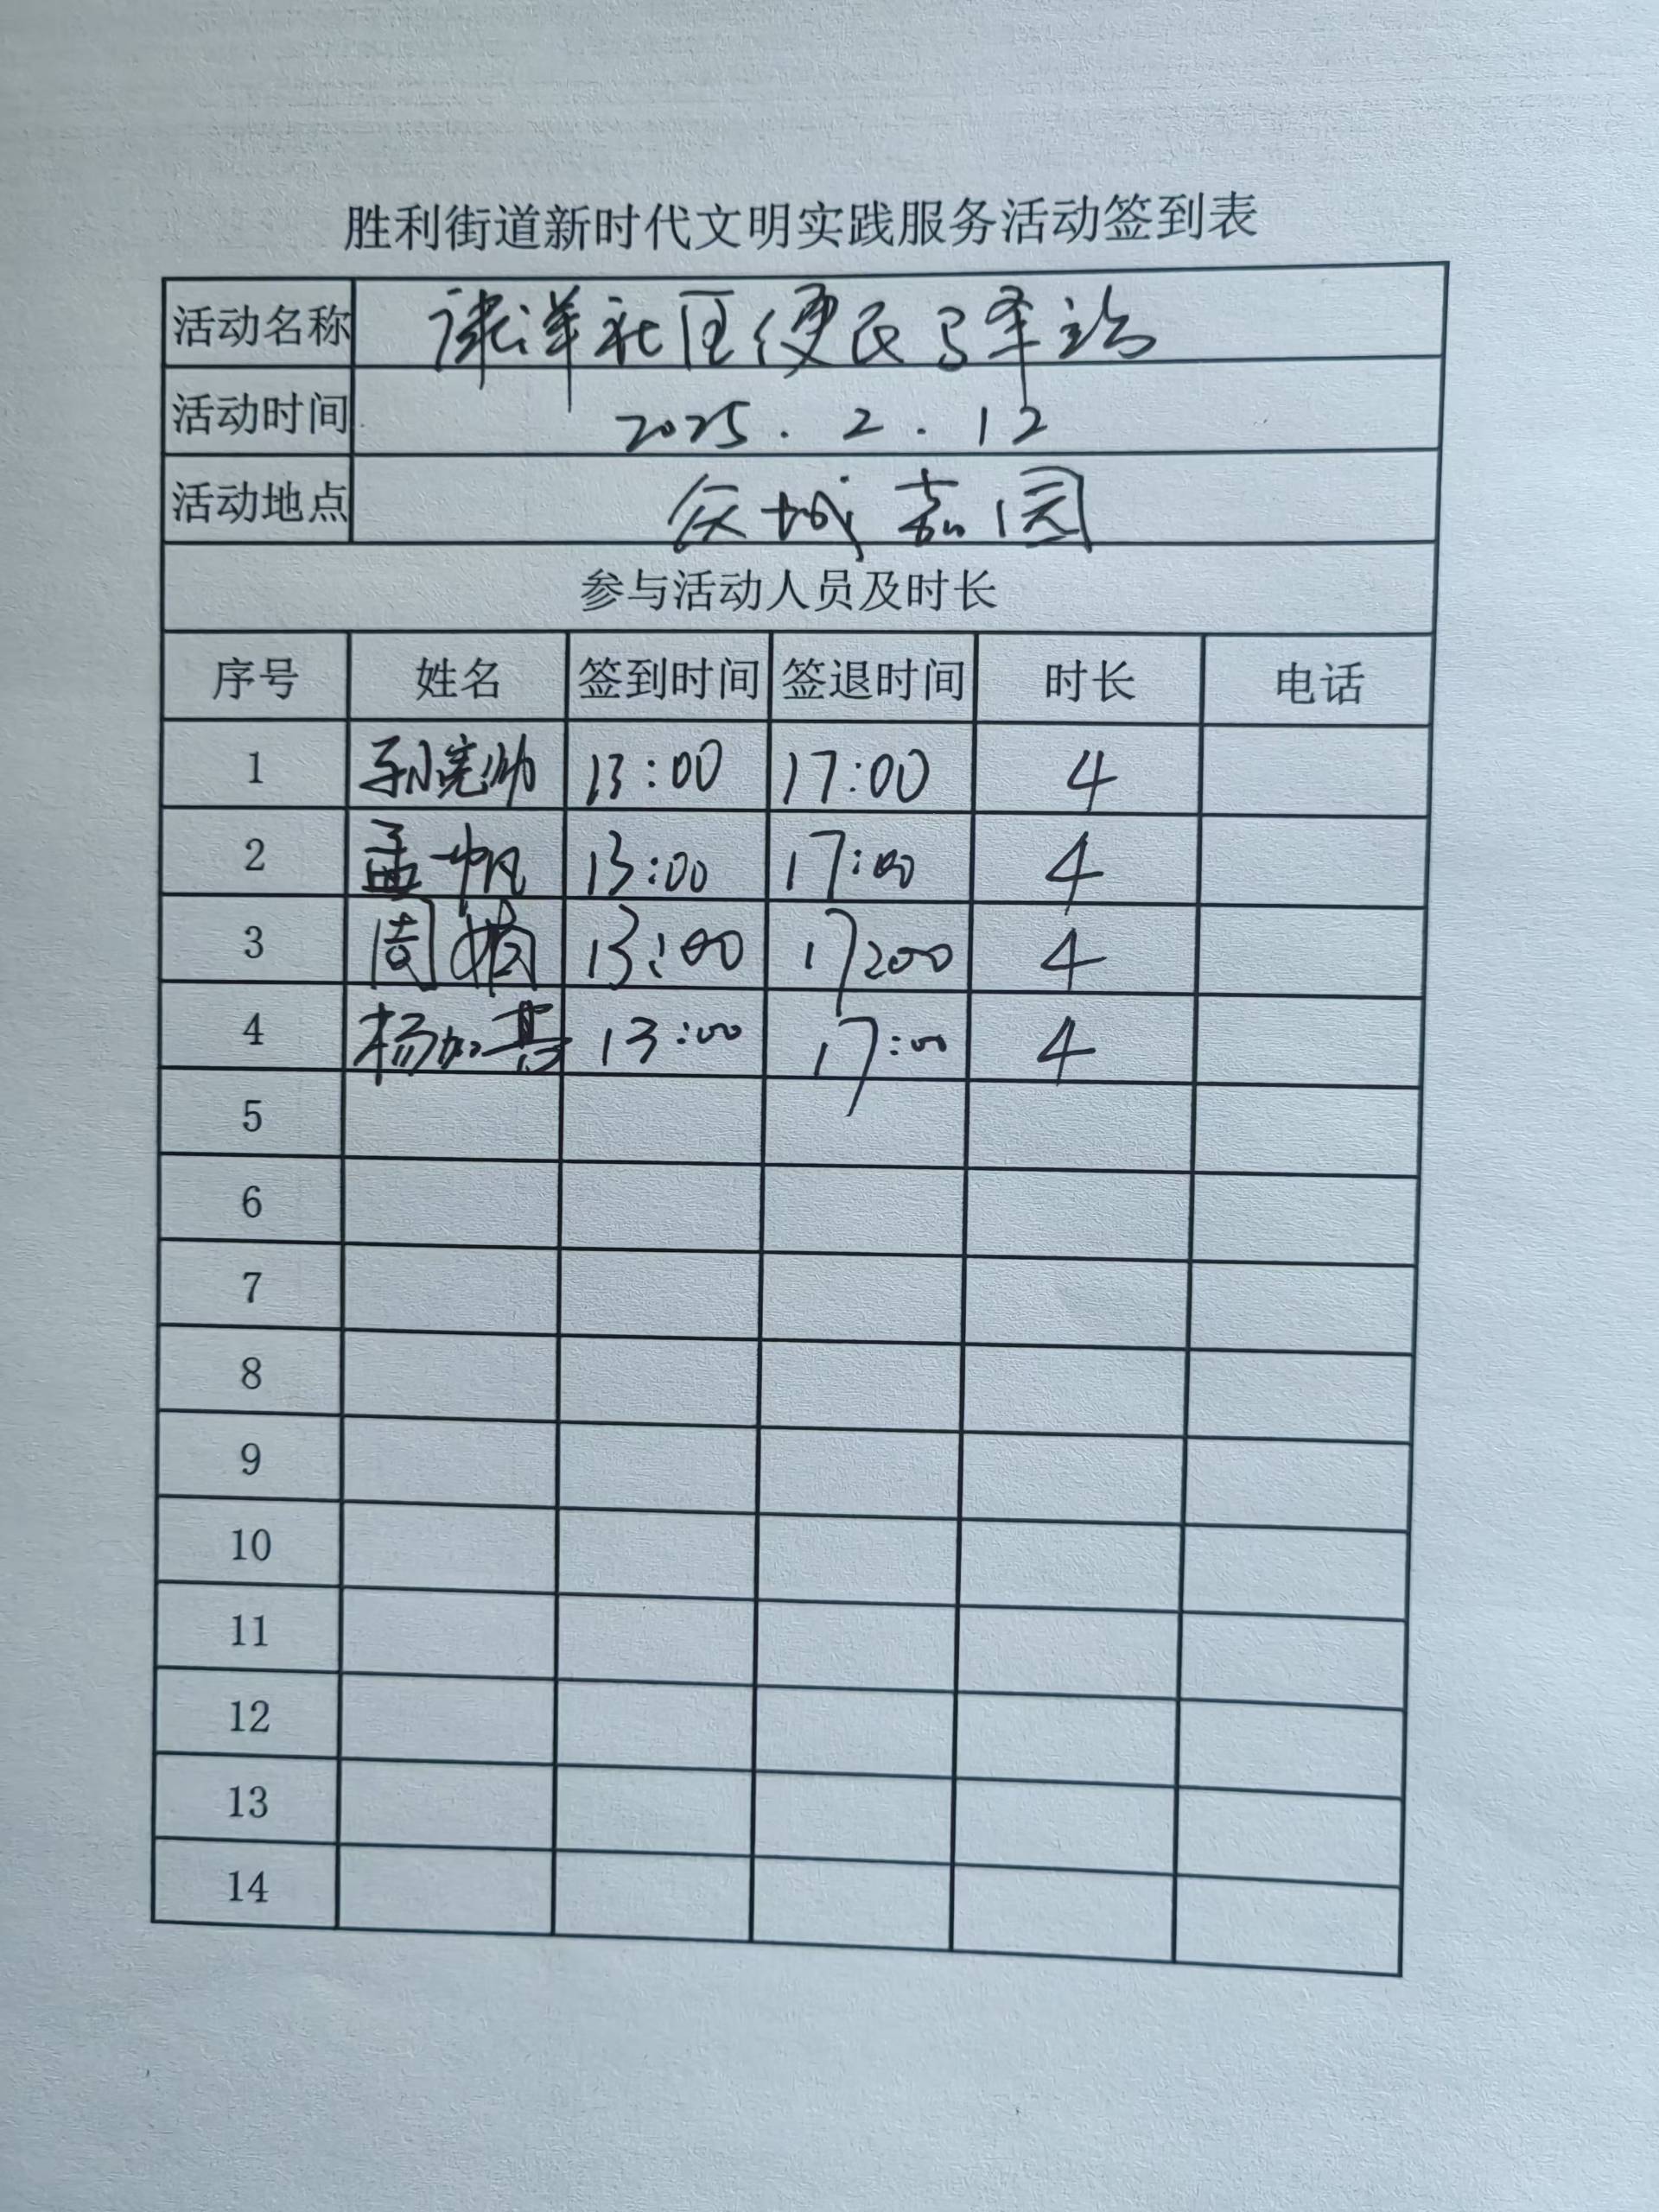 胜利街道新时代文明实践服务活动签到表
活动名称 社区便民驿站
活动时间 2025.2.12
活动地点 众城嘉园
参与活动人员及时长
序号 姓名 签到时间 签退时间 时长 电话
1 孙 帅 13:00 17:00 4
2 孟帆 13:00 17:00 4
3 周婧 13:00 17:00 4
4 杨加 13:00 17:00 4
5
6
7
8
9
10
11
12
13
14